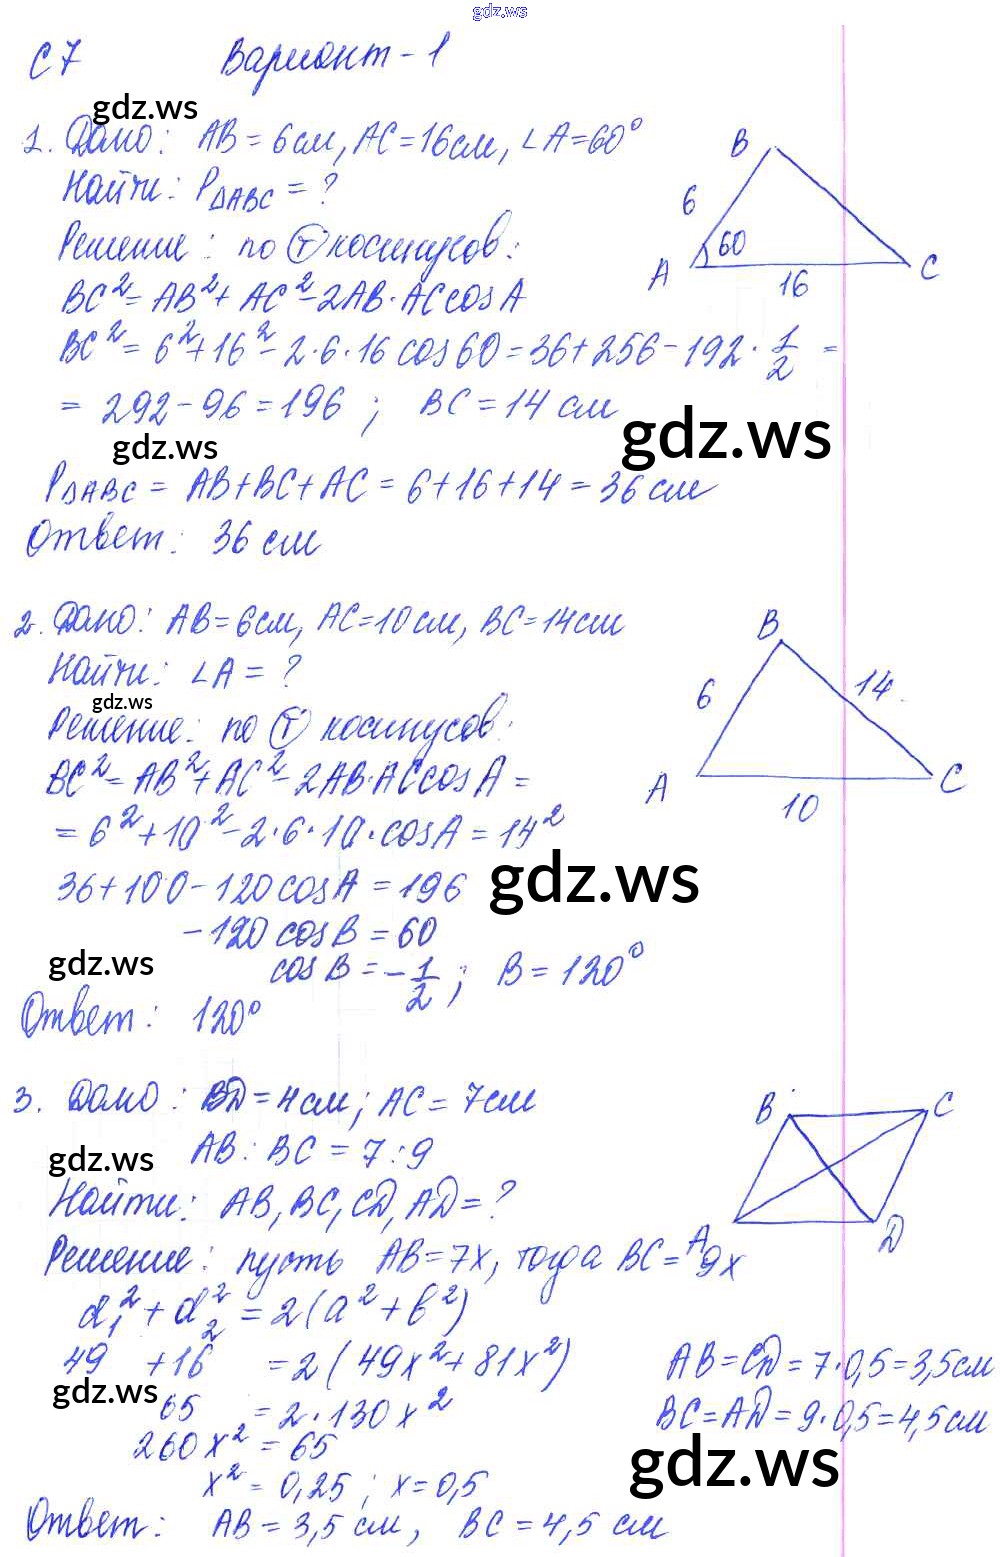 gdz.ws
С7 Вариант-1
gdz.ws
1. Дано: AB=6см, AC=16см, ∠A=60°
Найти: P△ABC = ?
Решение: по Ⓣ косинусов:
BC²=AB²+AC²-2AB·AC cos A
BC²=6²+16²-2·6·16 cos60=36+256-192·1/2 =
= 292-96=196; BC=14 см
gdz.ws
gdz.ws
P△ABC = AB+BC+AC=6+16+14=36см
Ответ: 36 см
B
6
60
A
16
C
2. Дано: AB=6см, AC=10см, BC=14см
Найти: ∠A=?
gdz.ws
Решение: по Ⓣ косинусов:
BC²=AB²+AC²-2AB·AC cos A =
= 6²+10²-2·6·10·cosA=14²
36+100-120cosA=196
gdz.ws
-120 cosB=60
gdz.ws
cosB=-1/2; B=120°
Ответ: 120°
B
6
14
A
10
C
3. Дано: BD=4см; AC=7см
AB:BC=7:9
gdz.ws
Найти: AB, BC, CD, AD=?
Решение: пусть AB=7x, тогда BC=9x
B
C
A
D
d₁²+d₂²=2(a²+b²)
49 +16 =2(49x²+81x²)
gdz.ws
65 =2·130x²
260x²=65
x²=0,25; x=0,5
AB=CD=7·0,5=3,5см
BC=AD=9·0,5=4,5см
gdz.ws
Ответ: AB=3,5 см, BC=4,5 см